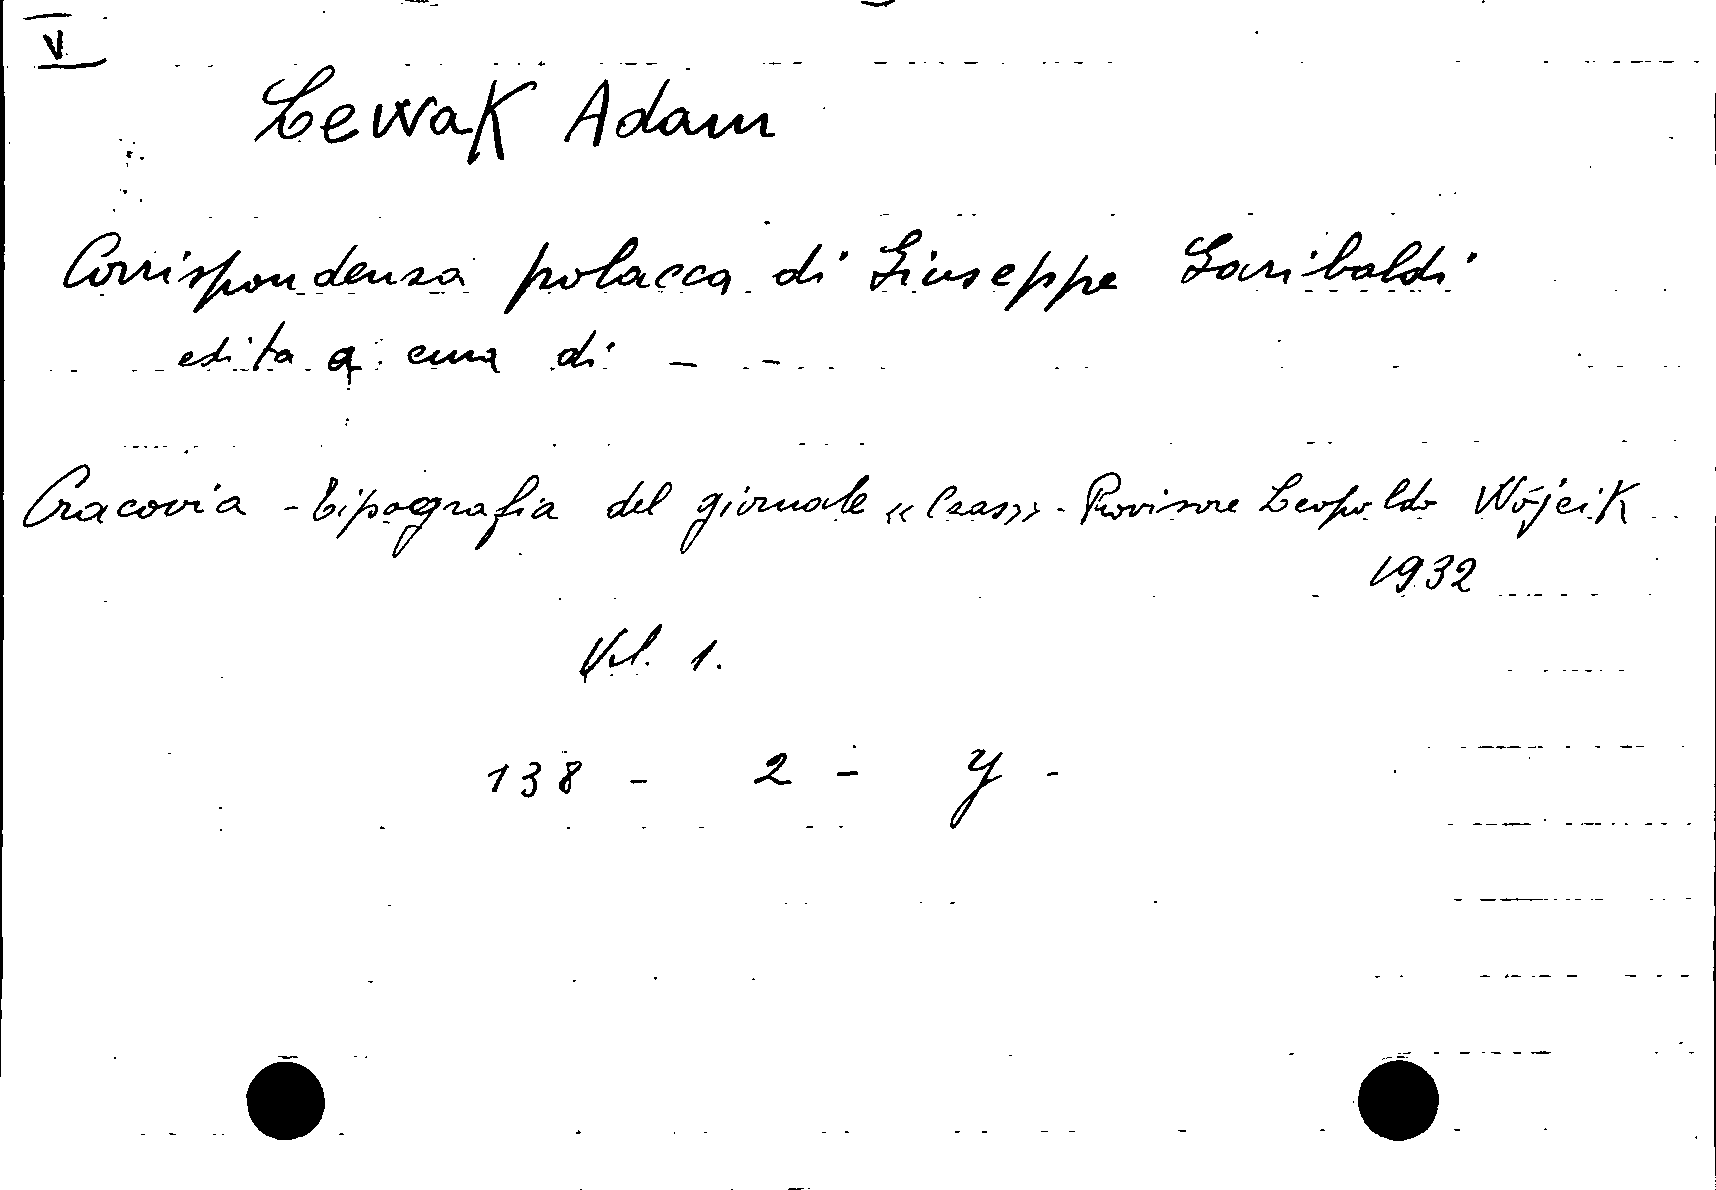 V
Lewak Adam
Corrispondenza polacca di Giuseppe Garibaldi
edita a cura di - -
Cracovia - tipografia del giornale «Czas» - Provisore Leopoldo Wójcik
1932
Vol. 1.
138 - 2 - Y -